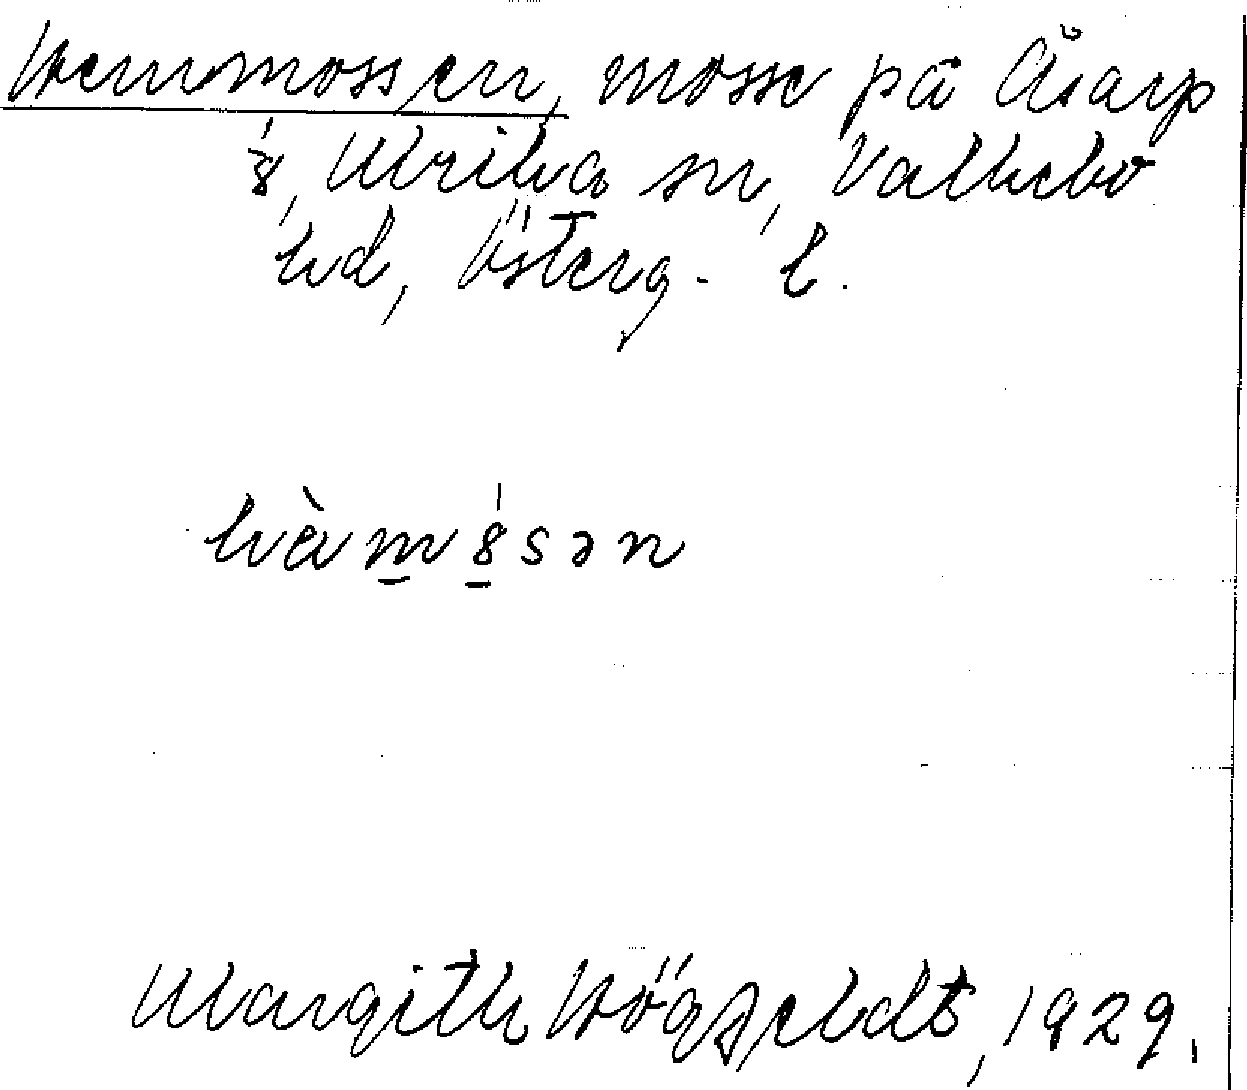 Hemmossen, mosse på Åsarp
1/8, Ulrika sn, Valkebo
hd, Österg. l.
hèm8́sən
Margith Högfeldt, 1929.